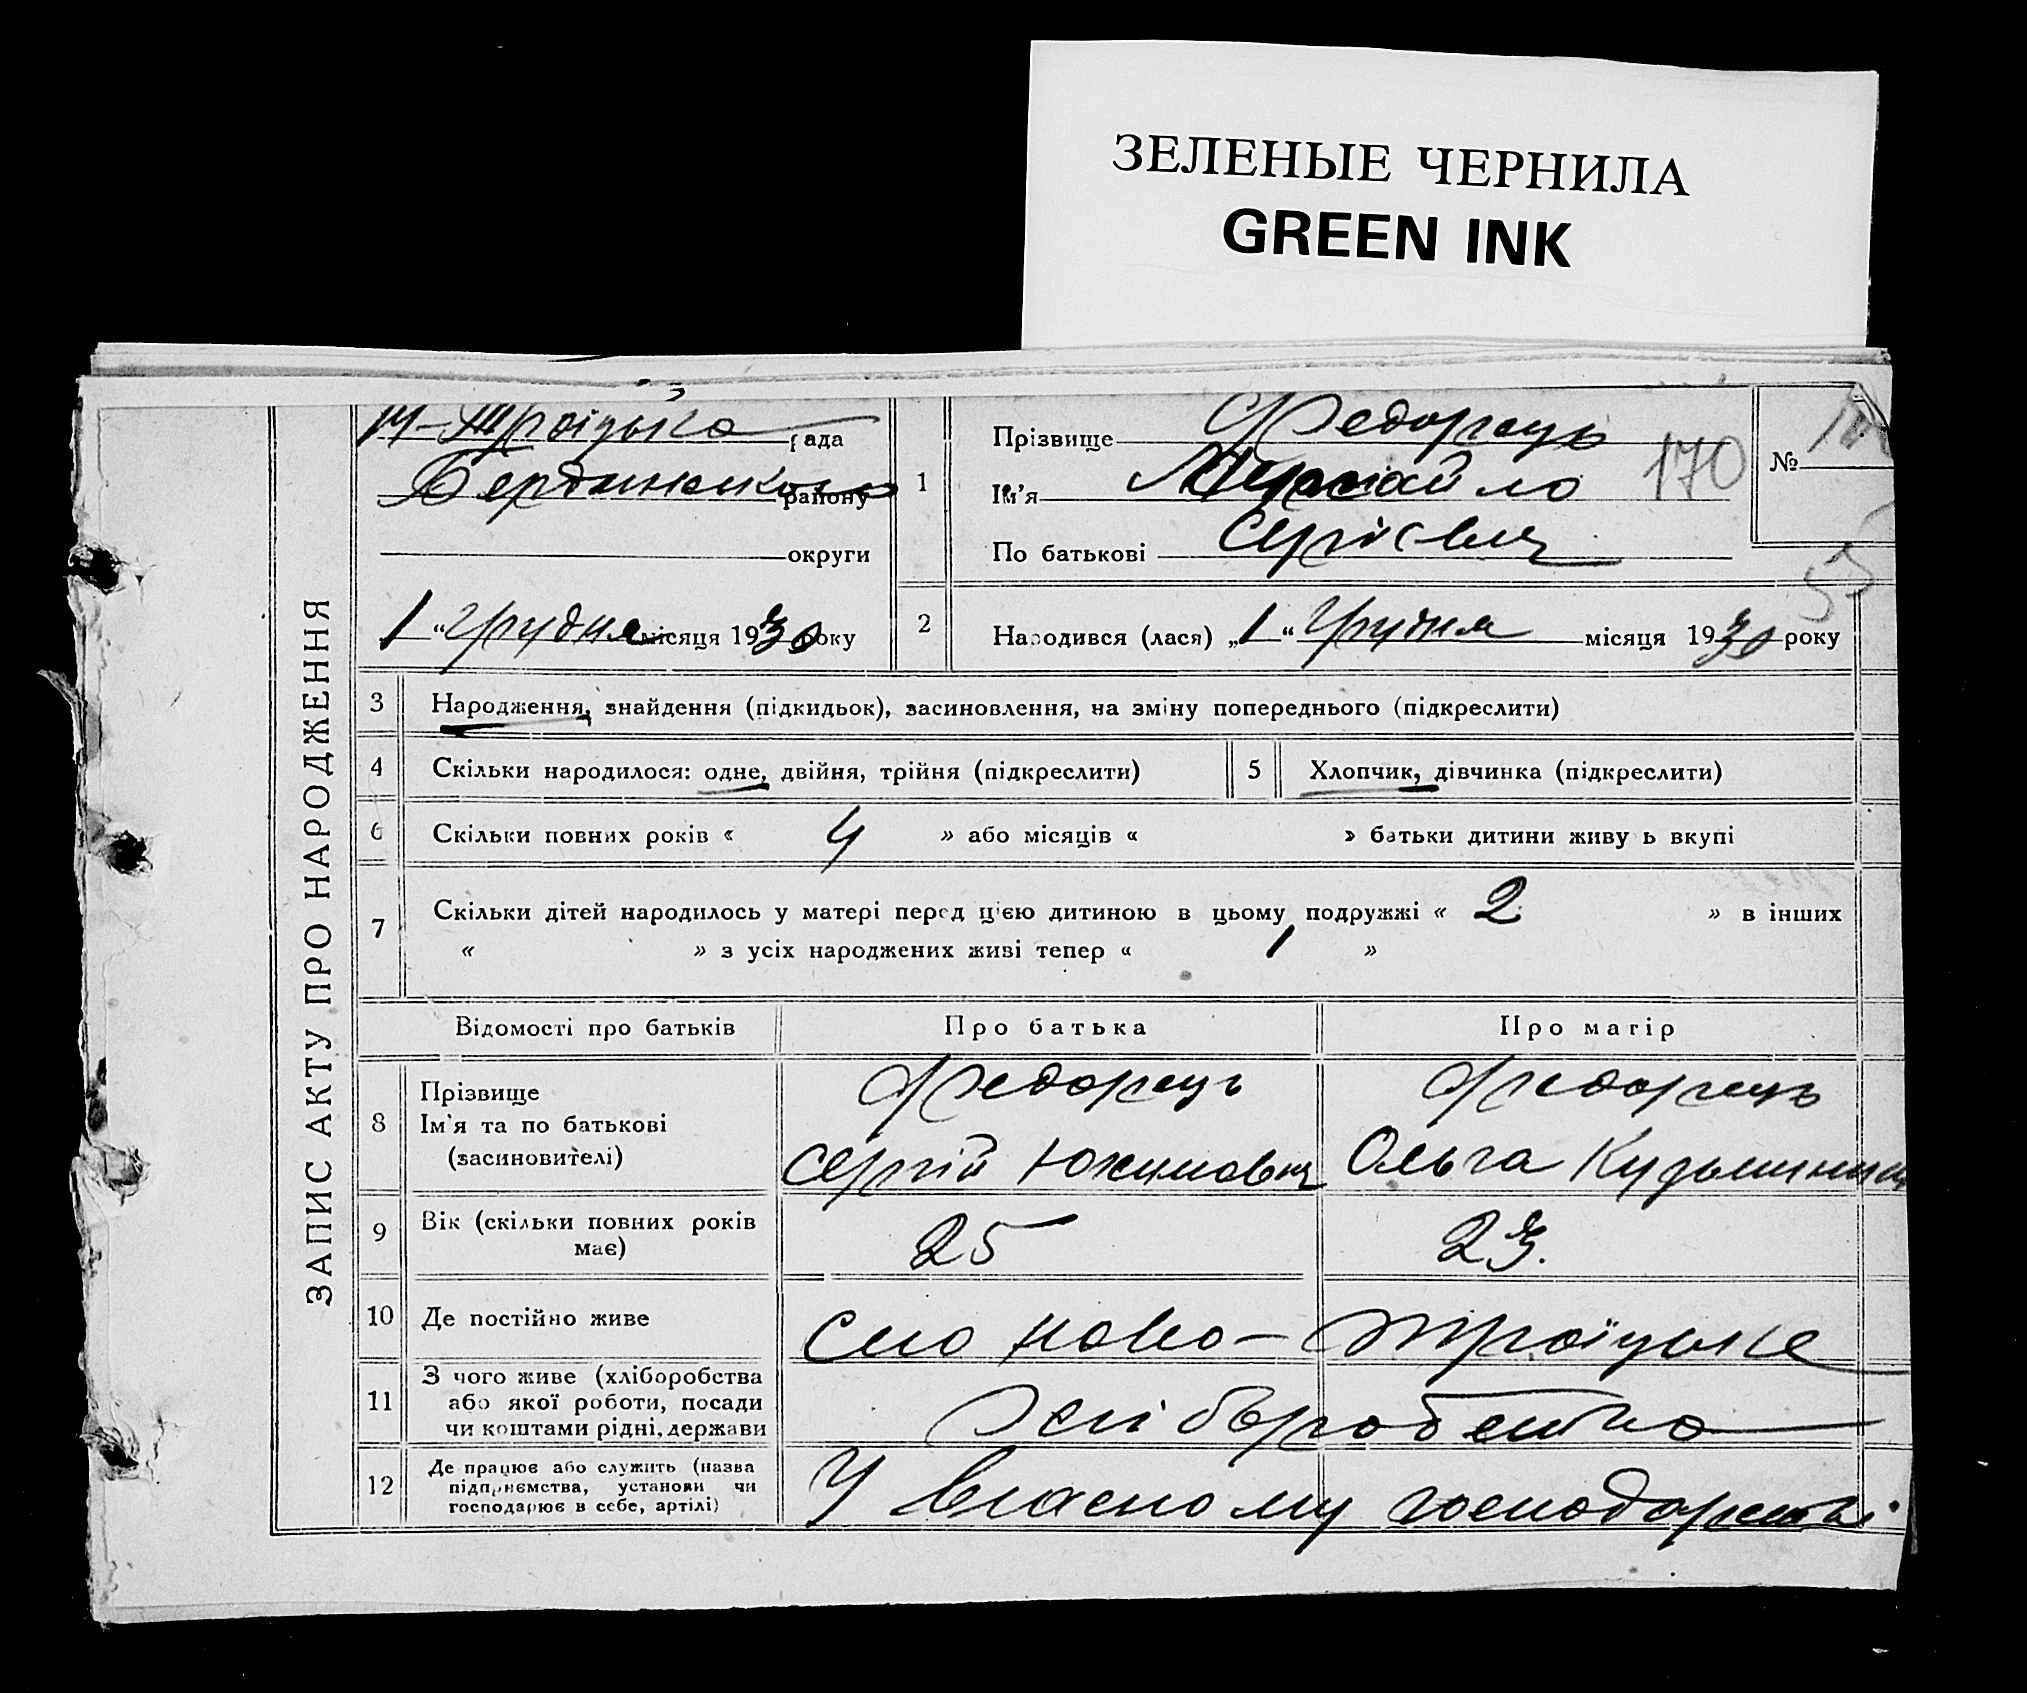 ЗЕЛЕНЫЕ ЧЕРНИЛА
GREEN INK
ЗАПИС АКТУ ПРО НАРОДЖЕННЯ
Н-Троіцька рада
Бердянського району
округи
1 " грудня місяця 1930 року
1 Прізвище Федорець
Ім'я Михайло 170
По батькові Сергієвич
№
55
2 Народився (лася) „ 1 " грудня місяця 1930 року
3 Народження, знайдення (підкидьок), засиновлення, на зміну попереднього (підкреслити)
4 Скільки народилося: одне, двійня, трійня (підкреслити)
5 Хлопчик, дівчинка (підкреслити)
6 Скільки повних років « 4 » або місяців « » батьки дитини живу ь вкупі
7 Скільки дітей народилось у матері перед цією дитиною в цьому подружжі « 2 » в інших
« » з усіх народжених живі тепер « 1 »
Відомості про батьків Про батька Про матір
8 Прізвище
Ім'я та по батькові
(засиновителі)
Федорець
Сергій Юхимович
Федорець
Ольга
9 Вік (скільки повних років
має)
25 23.
10 Де постійно живе Село Ново-Троїцьке
11 З чого живе (хліборобства
або якої роботи, посади
чи коштами рідні, держави
Хліборобство
12 Де працює або служить (назва
підприємства, установи чи
господарює в себе, артілі)
У власному господарстві.